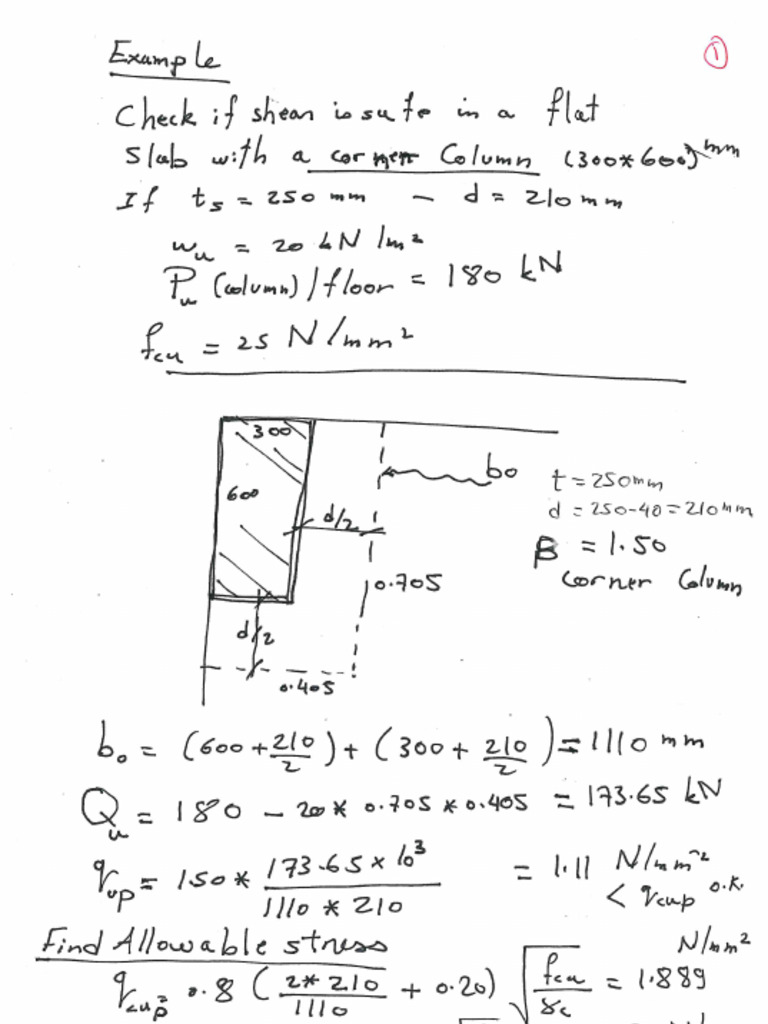 ①
Example
Check if shear is safe in a flat
Slab with a corner Column (300*600) mm
If ts = 250 mm – d = 210 mm
wu = 20 kN/m²
Pu (column)/floor = 180 kN
fcu = 25 N/mm²
300
bo
600
t = 250mm
d = 250-40 = 210mm
d/2
β = 1.50
0.705
corner Column
d/2
0.405
bo = (600 + 210/2) + (300 + 210/2) = 1110 mm
Qu = 180 – 20 * 0.705 * 0.405 = 173.65 kN
qup = 1.50 * 173.65 x 10³ / 1110 * 210 = 1.11 N/mm² < qcup o.k.
Find Allowable stress
qcup = 0.8 (2*210/1110 + 0.20) √fcu/γc = 1.889 N/mm²